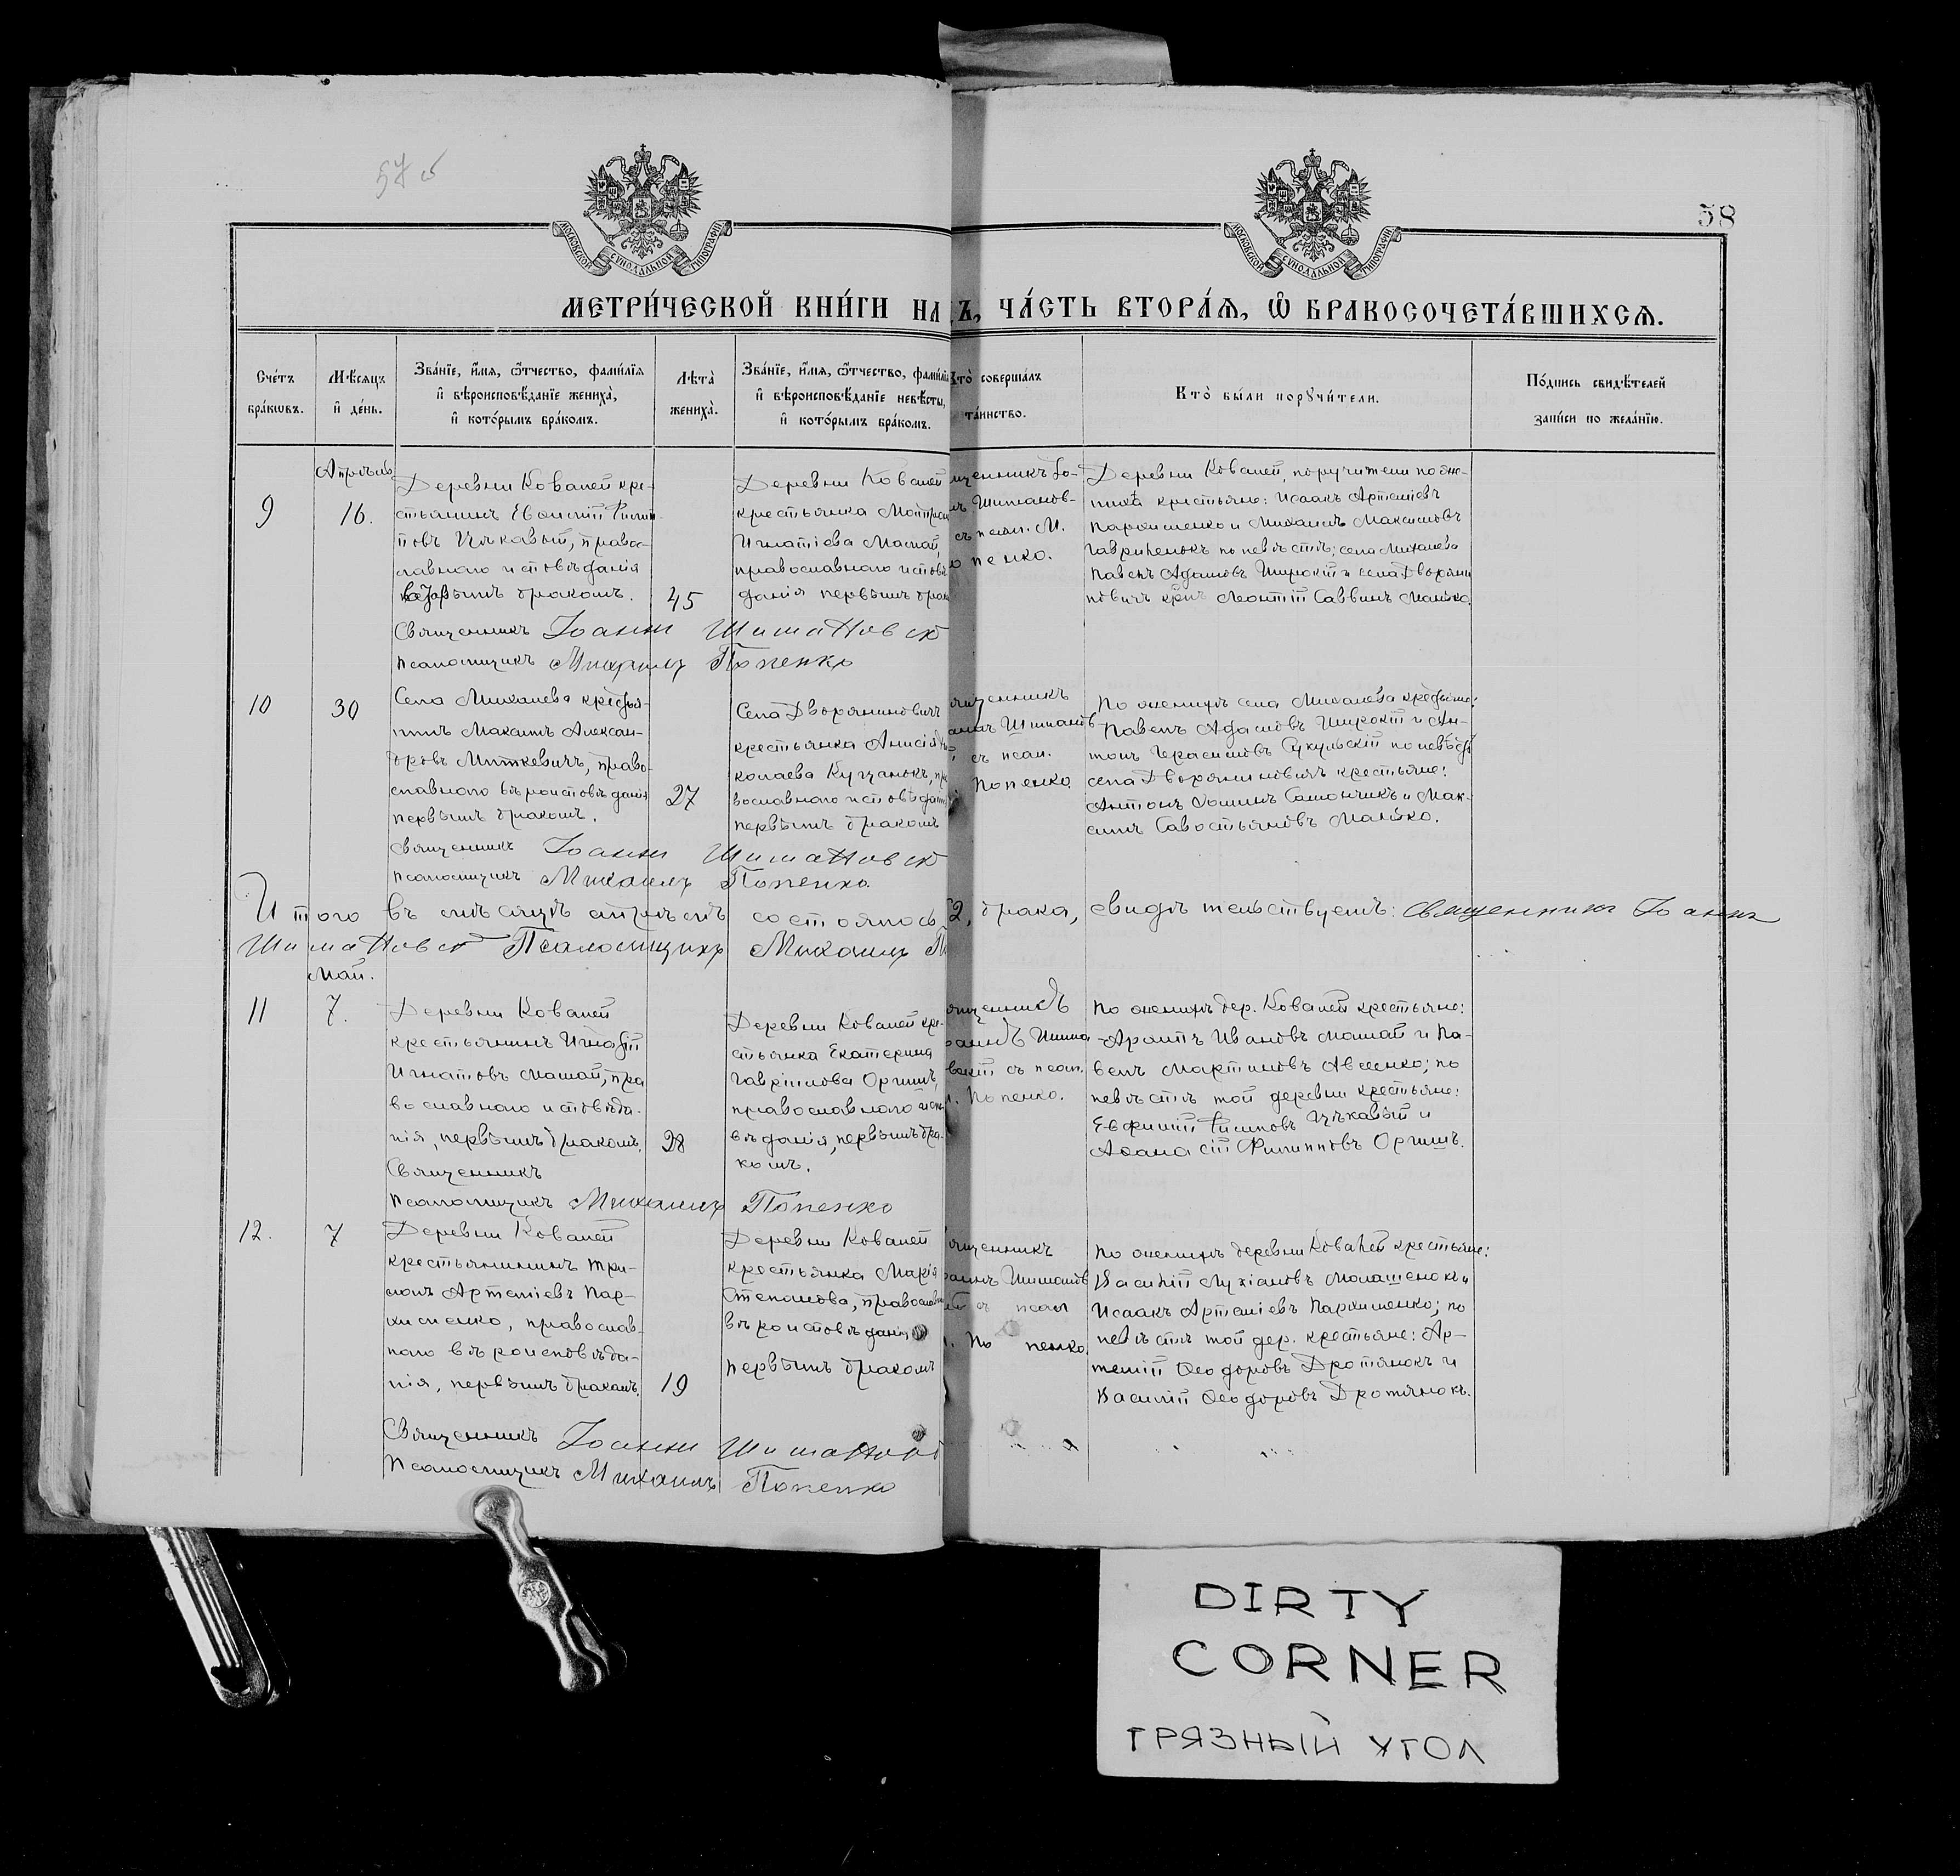 57 об
58
МОСКОВСКОЙ СѴНОДАЛЬНОЙ ТИПОГРАФІИ
МОСКОВСКОЙ СѴНОДАЛЬНОЙ ТИПОГРАФІИ
МЕТРИ́ЧЕСКОЙ КНИ́ГИ НА Ъ, ЧА́СТЬ ВТОРА́Ѧ, Ѽ БРАКОСОЧЕТА́ВШИХСѦ.
Сче́тъ бра́кѡвъ.
Мѣ́сѧцъ и҆ де́нь.
Зва́нїе, и҆́мѧ, ѻ҆́тчество, фами́лїѧ и҆ вѣроисповѣ́данїе жениха̀, и҆ кото́рымъ бра́комъ.
Лѣ́та̀ жениха̀.
Зва́нїе, и҆́мѧ, ѻ҆́тчество, фами́лїѧ и҆ вѣроисповѣ́данїе невѣ́сты, и҆ кото́рымъ бра́комъ.
Кто̀ соверша́лъ та́инство.
Кто̀ бы́ли порꙋчи́тели.
По́дпись свидѣ́телей за́писи по жела́нїю.
Апрѣль
9
16.
Деревни Ковалей кре-
стьянинъ
православнаго исповѣданія
бракомъ.
45
Деревни Ковалей
крестьянка
Игнатіева
православнаго исповѣ
данія первымъ брак
щенникъ Іо-
нъ Шиманов-
съ псал. М.
опенко.
Деревни Ковалей, поручители по же-
ниха крестьяне: Исаакъ Артеміевъ
Пархименко и Михаилъ Максимовъ
Гавриленокъ по невѣстѣ: села Михалева
Павелъ Адамовъ Широкій и села Дворяни
новичъ крест. Леонтій Саввинъ Малько.
Священникъ Іоаннъ Шимановск
Псаломщикъ Михаилъ Попенко
10
30
Села Михалева крестья-
нинъ Максимъ Алексан-
дровъ Миткевичъ, право-
славнаго вѣроисповѣданія
первымъ бракомъ.
27
Села Дворяниновичъ
крестьянка Анисія Ни
колаева пра
вославнаго исповѣдані
первымъ бракомъ
щенникъ
аннъ Шиманов
съ псал.
Попенко.
По женихѣ села Михалева крестьяне:
Павелъ Адамовъ Широкій и Ан-
тонъ Герасимовъ по невѣстѣ
села Дворяниновичъ крестьяне:
Антонъ Саманчикъ и Мак-
симъ Савостьяновъ Малько.
Священникъ Іоаннъ Шимановск
Псаломщикъ Михаилъ Попенко.
Итого въ мѣсяцѣ апрѣлѣ состоялось 2, брака, свидѣтельствуемъ: Священникъ Іоаннъ
Шимановск Псаломщикъ Михаилъ П
Май.
11
7.
Деревни Ковалей
крестьянинъ Игнатій
Игнатовъ Машай, пра
вославнаго исповѣда-
нія, первымъ бракомъ.
28
Деревни Ковалей кре-
стьянка Екатерина
Гавріилова Оришъ,
православнаго испо
вѣданія, первымъ бра-
комъ.
щенникъ
оаннъ Шима
вскій съ псал.
. Попенко.
По женихѣ дер. Ковалей крестьяне:
Ивановъ Машай и Па-
велъ Мартиновъ Авсенко; по
невѣстѣ той деревни крестьяне:
Евфимій и
Аѳанасій Филипповъ Оришъ.
Священникъ
Псаломщикъ Михаилъ Попенко
12.
7
Деревни Ковалей
крестьянинъ Три-
фонъ Артеміевъ Пар-
хименко, православ-
наго вѣроисповѣда-
нія, первымъ бракомъ.
19
Деревни Ковалей
крестьянка Марія
Степанова, православн
вѣроисповѣданія
первымъ бракомъ
щенникъ
оаннъ Шиманов
съ псал
. Попенко.
По женихѣ деревни Ковалей крестьяне:
Василій Лукіановъ и
Исаакъ Артеміевъ Пархименко; по
невѣстѣ той дер. крестьяне: Ар-
темій Ѳеодоровъ Дротянокъ и
Василій Ѳеодоровъ Дротянокъ.
Священникъ Іоаннъ Шиманов
Псаломщикъ Михаилъ Попенко
DIRTY
CORNER
ГРЯЗНЫЙ УГОЛ